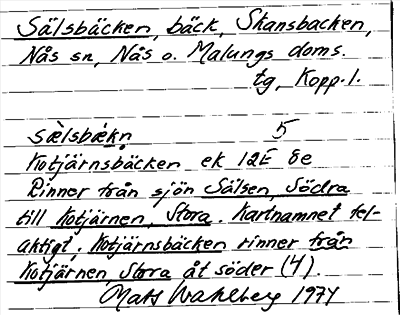 Sälsbäcken, bäck, Skansbacken,
Nås sn, Nås o. Malungs doms.
tg, Kopp. l.
sæ̀lsbækn 5
Kotjärnsbäcken ek 12E 8e
Rinner från sjön Sälsen, Södra
till Kotjärnen, Stora. Kartnamnet fel-
aktigt. Kotjärnsbäcken rinner från
Kotjärnen, Stora åt söder (4).
Mats Wahlberg 1974